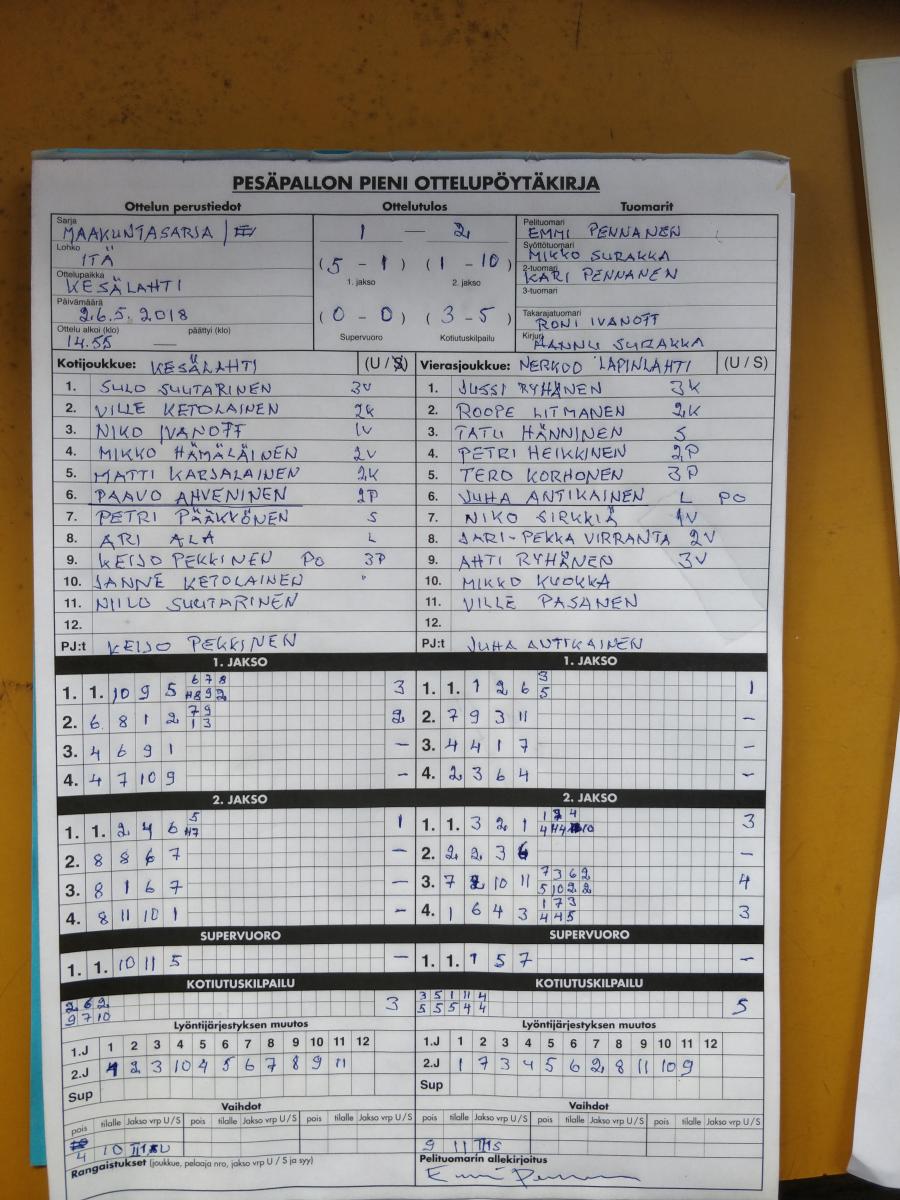 PESÄPALLON PIENI OTTELUPÖYTÄKIRJA
Ottelun perustiedot Ottelutulos Tuomarit
Sarja
MAAKUNTASARJA /
Lohko
ITÄ
Ottelupaikka
KESÄLAHTI
Päivämäärä
26.5. 2018
Ottelu alkoi (klo) päättyi (klo)
14.55 —
1 — 2
(5 - 1) (1 - 10)
1. jakso 2. jakso
(0 - 0) (3 - 5)
Supervuoro Kotiutuskilpailu
Pelituomari
EMMI PENNANEN
Syöttötuomari
MIKKO SURAKKA
2-tuomari
KARI PENNANEN
3-tuomari
Takarajatuomari
RONI IVANOFF
Kirjuri
HANNU SURAKKA
Kotijoukkue: KESÄLAHTI (U / S)
1. SULO SUUTARINEN 3V
2. VILLE KETOLAINEN 2K
3. NIKO IVANOFF 1V
4. MIKKO HÄMÄLÄINEN 2V
5. MATTI KARJALAINEN 2K
6. PAAVO AHVENINEN 2P
7. PETRI PÄÄKKÖNEN S
8. ARI ALA L
9. KEIJO PEKKINEN PO 3P
10. JANNE KETOLAINEN "
11. NIILO SUUTARINEN
12.
PJ:t KEIJO PEKKINEN
Vierasjoukkue: NERKOO LAPINLAHTI (U / S)
1. JUSSI RYHÄNEN 3K
2. ROOPE LITMANEN 2K
3. TATU HÄNNINEN S
4. PETRI HEIKKINEN 2P
5. TERO KORHONEN 3P
6. JUHA ANTIKAINEN L PO
7. NIKO SIRKKIÄ 1V
8. JARI-PEKKA VIRRANTA 2V
9. AHTI RYHÄNEN 3V
10. MIKKO KUOKKA
11. VILLE PASANEN
12.
PJ:t JUHA ANTIKAINEN
1. JAKSO
1. 1. 10 9 5 6 7 8 3
2. 6 8 1 2 7 9 1 3 2
3. 4 6 9 1 –
4. 4 7 10 9 –
1. JAKSO
1. 1. 1 2 6 3 5 1
2. 7 9 3 11 –
3. 4 4 1 7 –
4. 2 3 6 4 –
2. JAKSO
1. 1. 2 4 6 5 1
2. 8 8 6 7 –
3. 8 1 6 7 –
4. 8 11 10 1 –
2. JAKSO
1. 1. 3 2 1 3
2. 2 2 3 6 –
3. 7 10 11 7 3 6 2 5 10 2 2 4
4. 1 6 4 3 1 7 3 4 4 5 3
SUPERVUORO
1. 1. 10 11 5 –
SUPERVUORO
1. 1. 1 5 7 –
KOTIUTUSKILPAILU
2 6 2
9 7 10 3
KOTIUTUSKILPAILU
3 5 1 11 4
5 5 5 4 4 5
Lyöntijärjestyksen muutos
1.J 1 2 3 4 5 6 7 8 9 10 11 12
2.J 1 2 3 10 4 5 6 7 8 9 11
Sup
Lyöntijärjestyksen muutos
1.J 1 2 3 4 5 6 7 8 9 10 11 12
2.J 1 7 3 4 5 6 2 8 11 10 9
Sup
Vaihdot
pois tilalle Jakso vrp U / S pois tilalle Jakso vrp U / S pois tilalle Jakso vrp U / S
4 10
Rangaistukset (joukkue, pelaaja nro, jakso vrp U / S ja syy)
Vaihdot
pois tilalle Jakso vrp U / S pois tilalle Jakso vrp U / S pois tilalle Jakso vrp U / S
9 11 II1S
Pelituomarin allekirjoitus